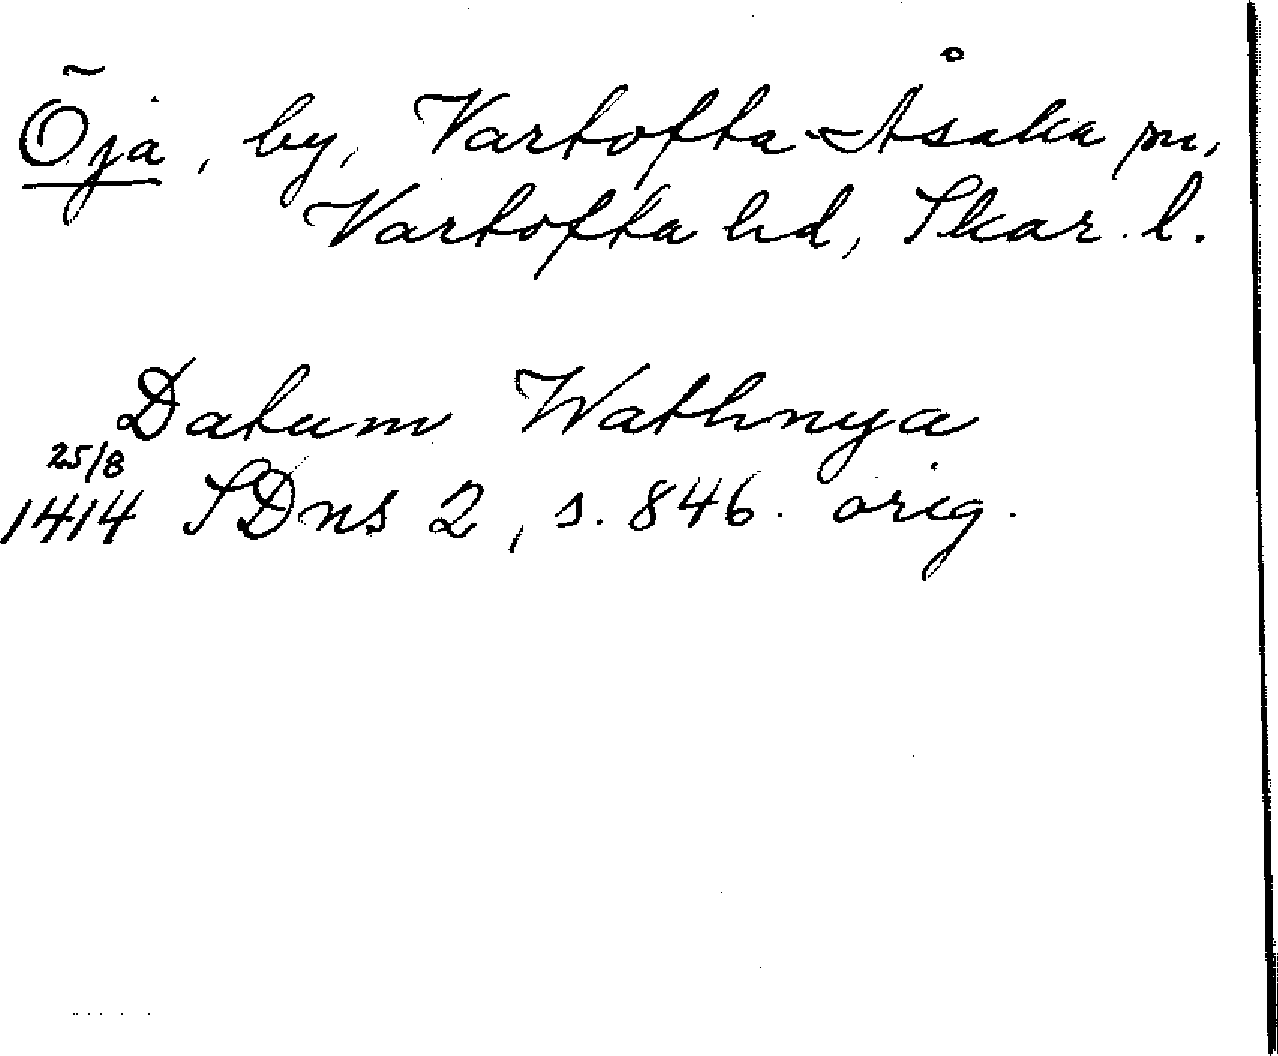 Öja, by, Vartofta-Åsaka sn,
Vartofta hd, Skar. l.
Datum Wathnya
25/8
1414 SDns 2, s. 846. orig.